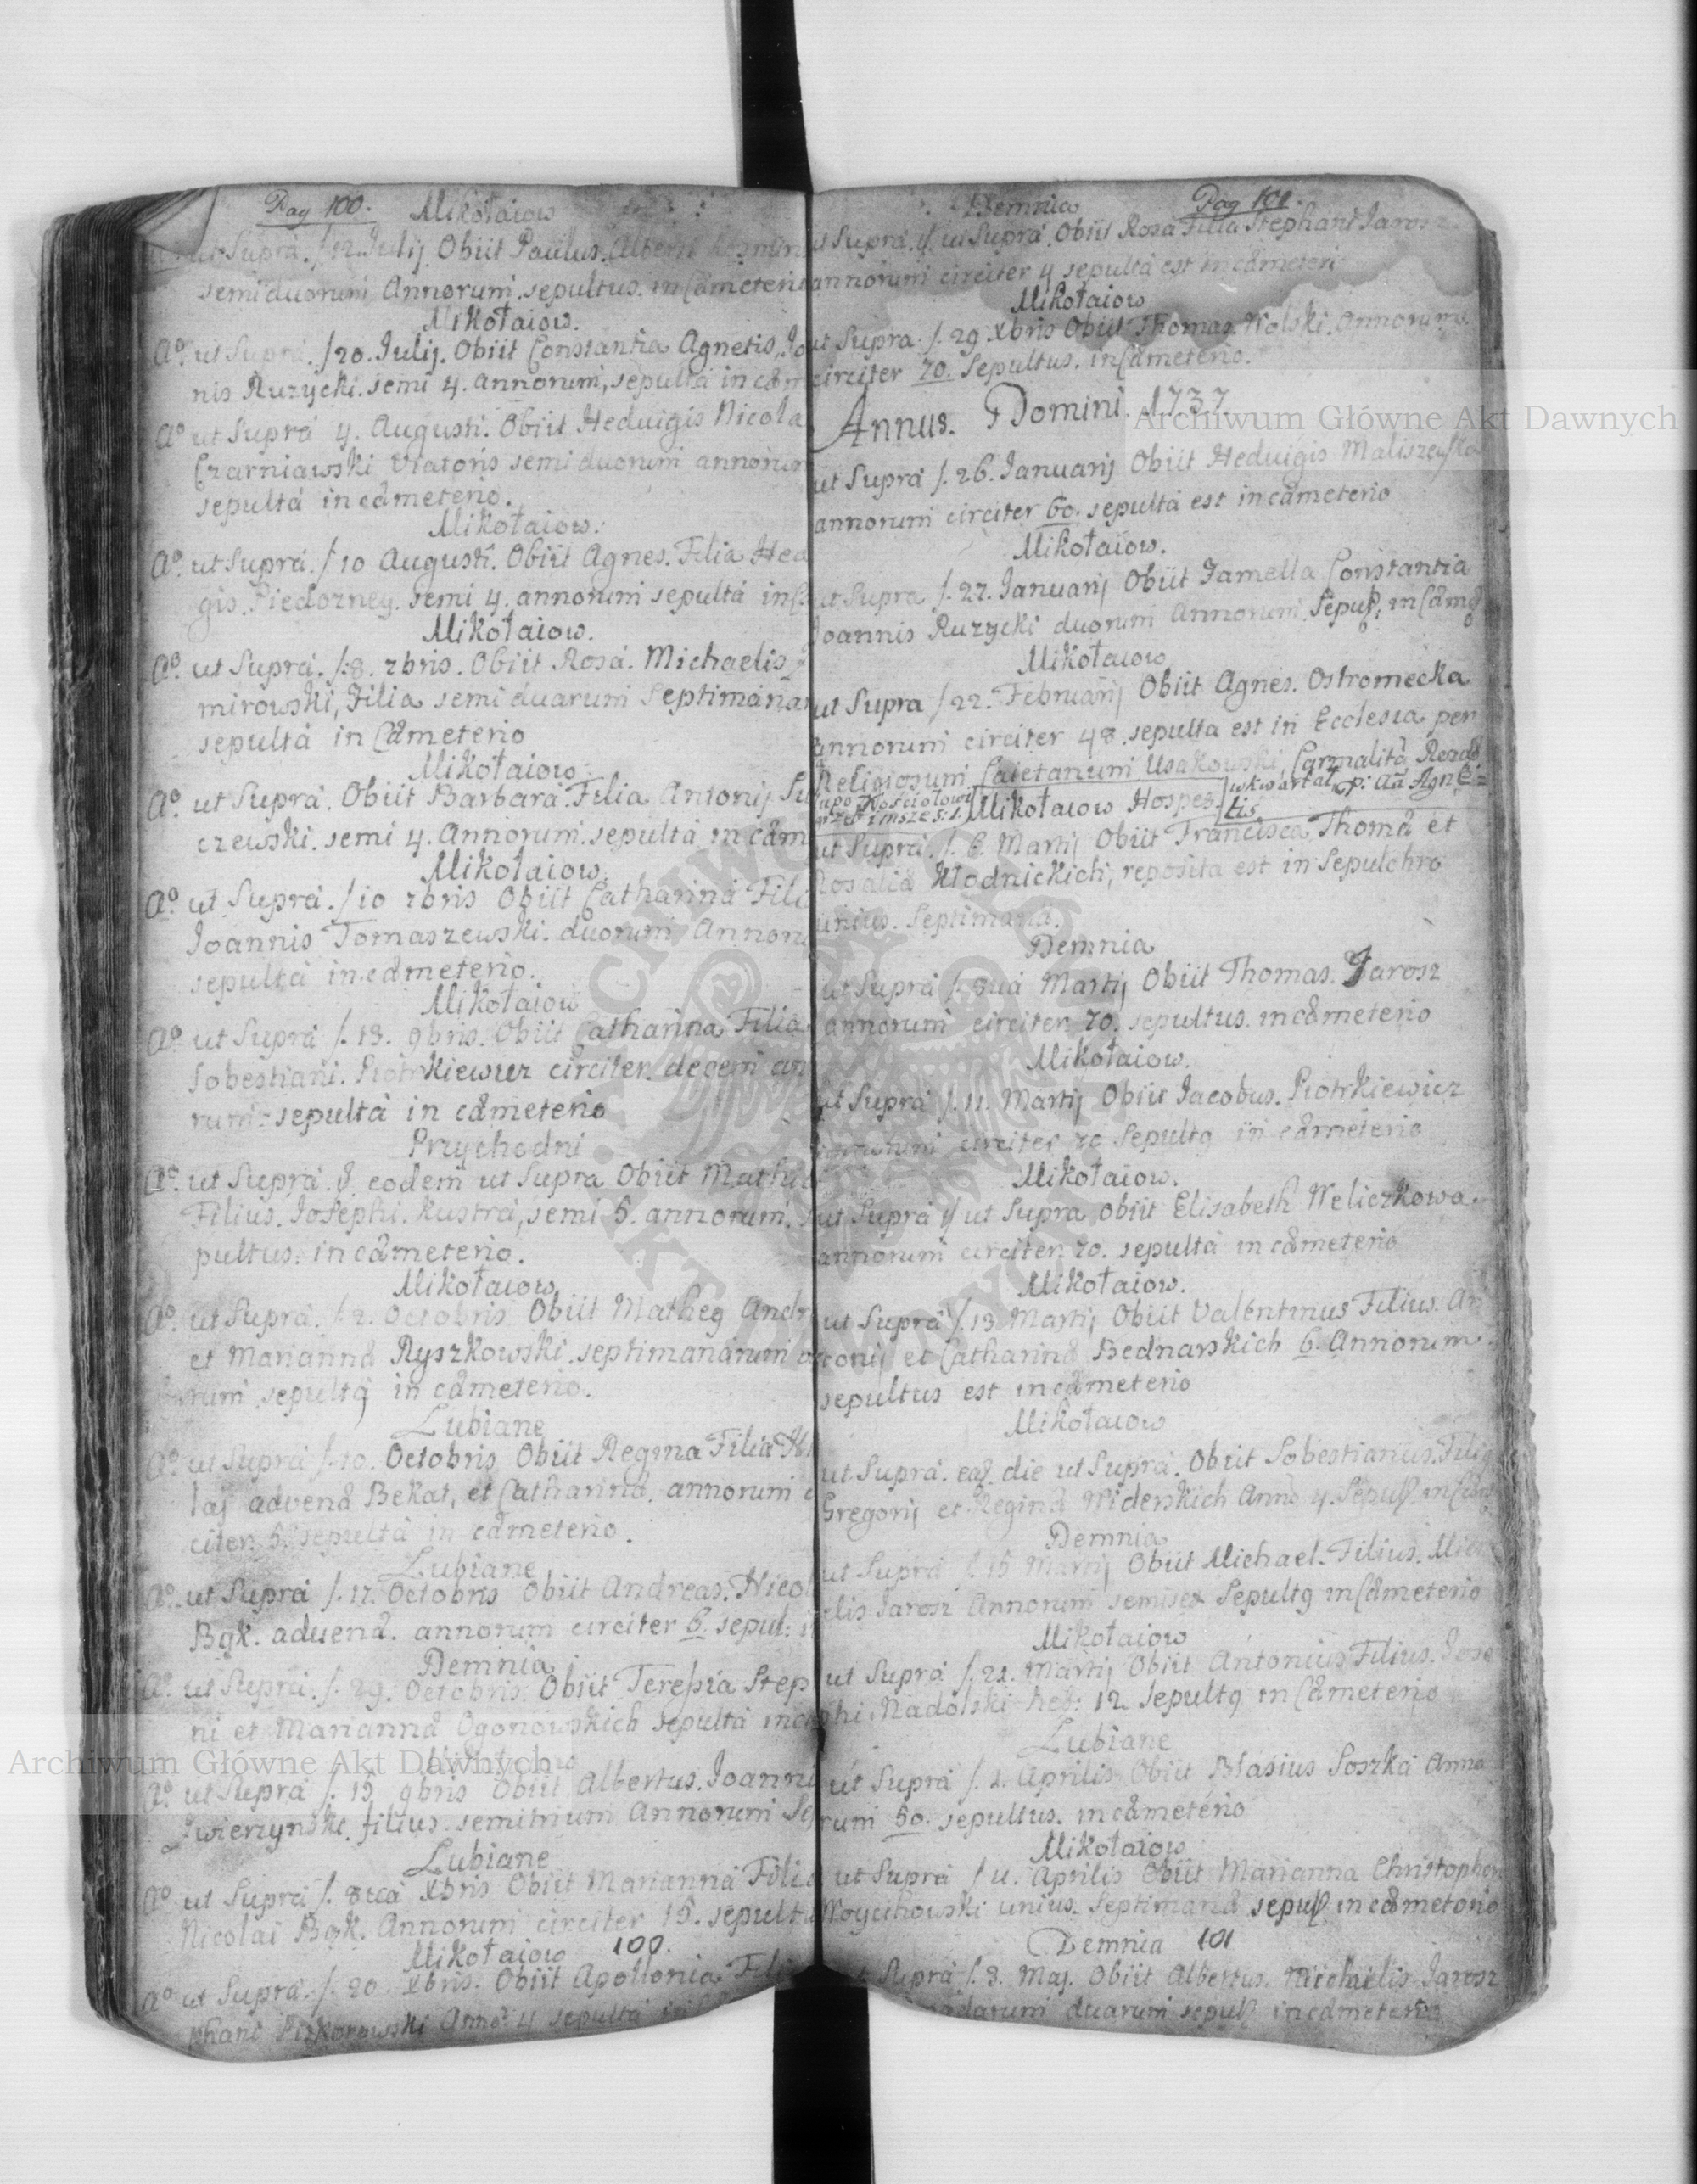 Pag 100. Mikołaiow
ut Supra. /12. Julij Obiit Paulus. Alberti
semiduorum Annorum. sepultus. in Cæmeterio
Mikołaiow.
Aº. ut Supra. /20. Julij. Obiit Constantia Agnetis, Jo
nis Ruzycki. semi 4. annorum, sepulta in cæm
Aº ut Supra 4. Augusti. Obiit Hedvigis Nicola
Czarniawski Viatoris semiduorum annorum
sepulta in cæmeterio.
Mikołaiow.
Aº. ut Supra. / 10 Augusti. Obiit Agnes. Filia Hed
gis. Piedozney. semi 4. annorum sepulta in C
Mikołaiow.
Aº. ut Supra. /:8. 7bris. Obiit Rosa. Michaelis
mirowski, Filia semi duarum Septimanar
sepulta in Cæmeterio
Mikołaiow.
Aº ut Supra. Obiit Barbara. Filia Antonij Su
czewski. semi 4. Annorum. sepulta in cæm
Mikołaiow.
Aº. ut Supra. /10 7bris Obiit Catharina Filia
Joannis Tomaszewski. duorum Annoru
sepulta in cæmeterio.
Mikołaiow
Aº ut Supra /. 13. 9bris. Obiit Catharina Filia
Sobestiani. Piotrkiewicz circiter. decem an
rum sepulta in cæmeterio
Przychodni
Aº. ut Supra. eodem ut Supra Obiit Mathia
Filius. Josephi. Kustra, semi 5. annorum.
pultus. in cæmeterio.
Mikołaiow
Aº. ut Supra. /.2. Octobris Obiit Matheg Andr
et Mariannæ Ryszkowski. septimanarum
rum sepultg in cæmeterio.
Lubiane
Aº. ut Supra /.10. Octobris Obiit Regina Filia
laj advenæ Bekat, et Catharinæ. annorum
citer. 5. sepulta in cæmeterio.
Lubiane
Aº. ut Supra /.17. Octobris Obiit Andreas. Nicol
Bgk. advenæ. annorum circiter 6. sepul: i
Demnia
Aº. ut Supra. /. 29. Octobris. Obiit Teressia Step
ni et Mariannæ Ogonowskich sepulta in
Mikołaiow
Aº. ut Supra /. 15 9bris Obiit Albertus. Joanni
Zwierzynski. filius. semitrium Annorum Sep
Lubiane
Aº ut Supra /. 8va Xbris Obiit Marianna Filia
Nicolai Bgk. Annorum circiter 15. sepult
Mikołaiow 100.
Aº ut Supra. /. 20. Xbris. Obiit Apollonia Fil
phani Annor 4 sepulta in
Demnia Pag 101.
ut Supra. ut Supra. Obiit Rosa Filia Stephani Jarosz
annorum circiter 4 sepulta est in Cæmeteri
Mikołaiow
ut Supra /. 29 Xbris Obiit Thomas. Wolski. Annorum
circiter 70. Sepultus. in Cæmeterio.
Annus. Domini. 1737
ut Supra /. 26. Januarij Obiit Hedvigis Maliszewska
annorum circiter 60. sepulta est in cæmeterio
Mikołaiow.
ut Supra /. 27. Januarij Obiit Famella Constantia
Joannis Ruzycki duorum Annorum. Sepul. in Cæmę
Mikołaiow
ut Supra / 22. Februarij Obiit Agnes. Ostromecka
annorum circiter 48. sepulta est in Ecclesia per
Religiosum Caietanum Usakowski, Carmalita
Kosciołowi Mikołaiow Hospes. w kwartał p: aa Agne
1 msze s. tis
ut Supra. /. 6. Martij Obiit Francisca Thomæ et
Rosaliæ Kłodnickich, reposita est in Sepulchro
unius. Septimanæ.
Demnia
ut Supra /. 8va Martij Obiit Thomas. Jarosz
annorum circiter 70. sepultus. in cæmeterio
Mikołaiow.
ut Supra /. 11. Martij Obiit Jacobus. Piotrkiewicz
annorum circiter 70 Sepultg in cæmeterio
Mikołaiow.
ut Supra ut Supra obiit Elisabeth Weliczkowa
annorum circiter 70. sepulta in cæmeterio
Mikołaiow.
ut Supra /.13 Martij Obiit Valentinus Filius. An
tonij et Catharinæ Bednarskich 6. Annorum
sepultus est in cæmeterio
Mikołaiow
ut Supra. die ut Supra. Obiit Sobestianus. Filig
Gregorij et Reginæ Widerskich Anno 4.
Demnia
ut Supra /. 15 Martij Obiit Michael. Filius. Mich
elis Jarosz Annorum semisex Sepultg in Cæmeterio
Mikołaiow
ut Supra /. 21. Martij Obiit Antonius Filius. Jose
phi. Nadolski heb: 12 Sepultg in Cæmeterio
Lubiane
ut Supra /. 1. Aprilis Obiit Błasius Soszka Anno
rum 50. sepultus. in cæmeterio
Mikołaiow
ut Supra / 11. Aprilis Obiit Marianna Christophori
Woycihowski unius. Septimanæ sepul in cæmeterio
Demnia 101
ut Supra /. 8. Maj. Obiit Albertus. Michælis Jarosz
duarum sepul in cæmeterio
Archiwum Główne Akt Dawnych
Archiwum Główne Akt Dawnych
ARCHIWUM GŁÓWNE AKT DAWNYCH